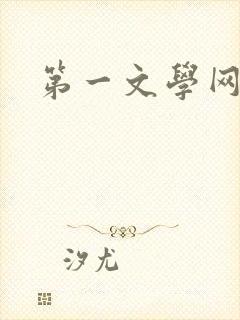 第一文學网
汐尤